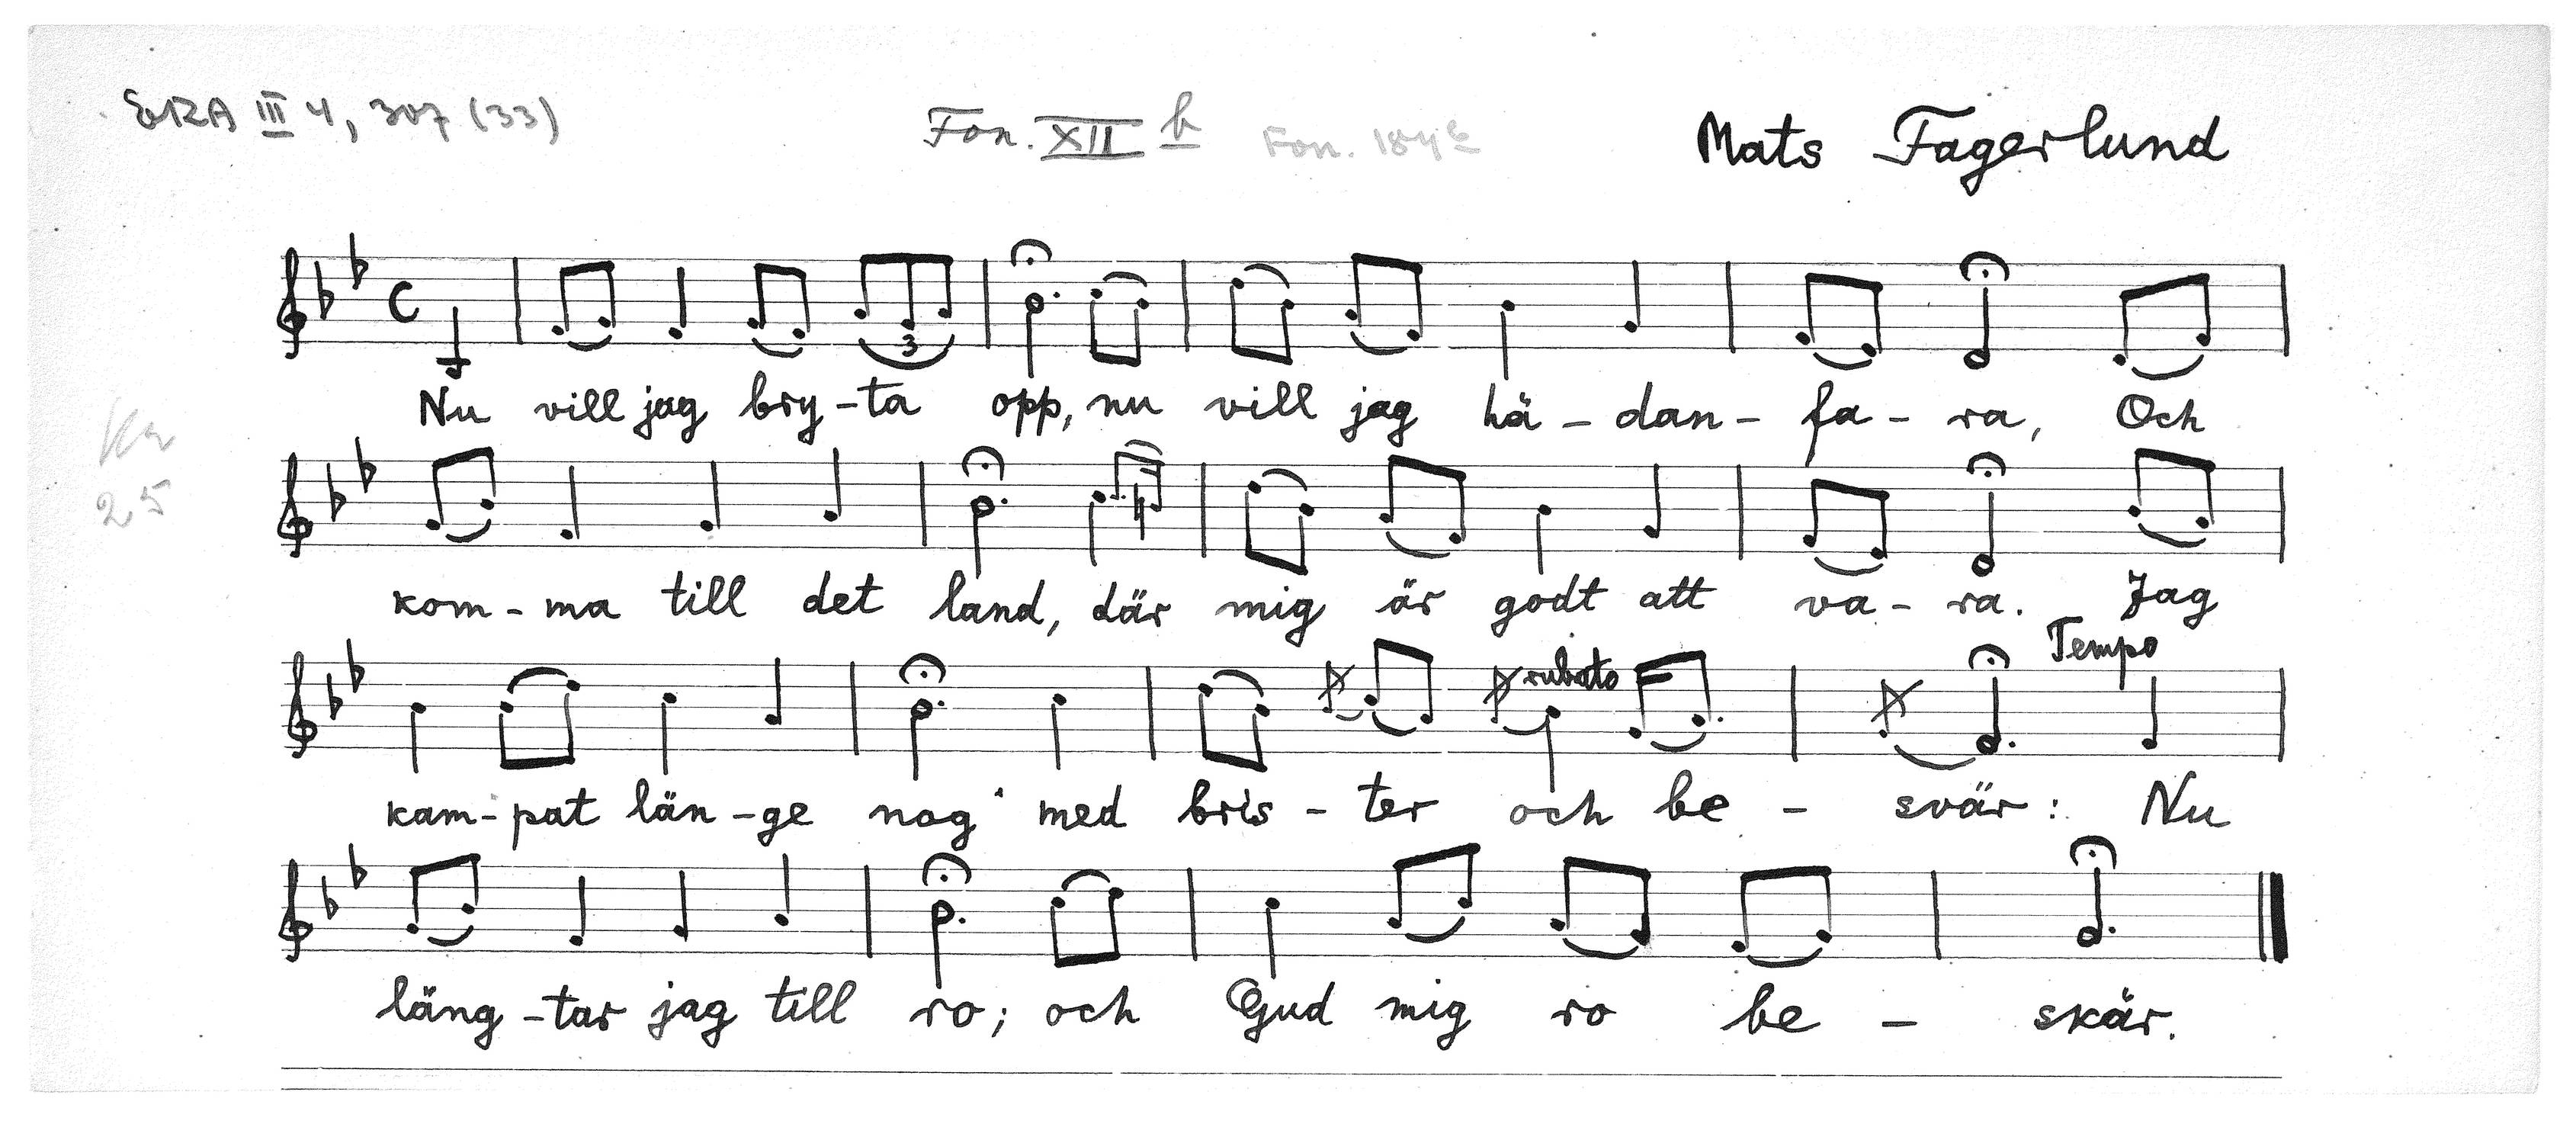 EKA III 4, 307 (33) Fon. XII b Fon. 184 c Mats Fagerlund
3
Nu vill jag bry-ta opp, nu vill jag hä-dan-fa-ra, Och
25
kom-ma till det land, där mig är godt att va-ra. Jag
rubato Tempo
kam-pat län-ge nog med bris-ter och be-svär: Nu
läng-tar jag till ro; och Gud mig ro be-skär.